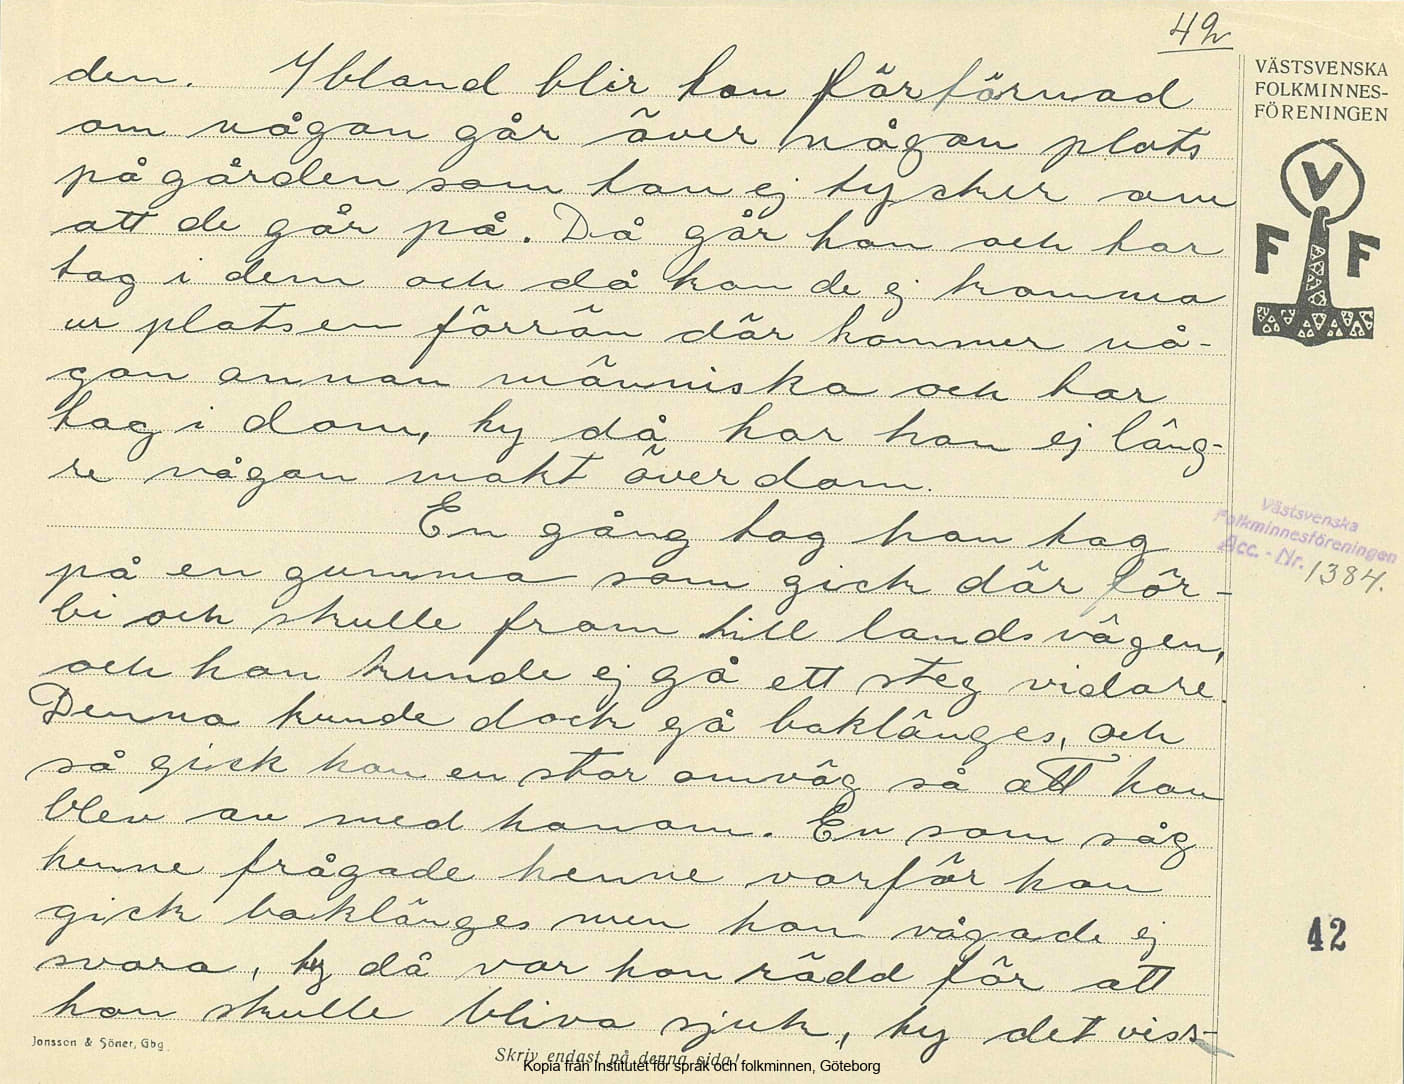 42
VÄSTSVENSKA
FOLKMINNES-
FÖRENINGEN
V
F F
den. Ibland blir han förförnad
om någon går över någon plats
på gården som han ej tycker om
att de går på. Då går han och tar
tag i dem och då kan de ej komma
ur platsen förrän där kommer nå-
gon annan människa och tar
tag i dom, ty då har han ej läng-
re någon makt över dom.
En gång tog han tag
på en gumma som gick där för-
bi och skulle fram till landsvägen,
och hon kunde ej gå ett steg vidare.
Denna kunde dock gå baklänges, och
så gick hon en stor omväg så att hon
blev av med honom. En som såg
henne frågade henne varför hon
gick baklänges men hon vågade ej
svara, ty då var hon rädd för att
hon skulle bliva sjuk, ty det viss-
Västsvenska
Folkminnesföreningen
Acc. - Nr. 1384.
42
Jonsson & Söner, Gbg.
Skriv endast på denna sida!
Kopia från Institutet för språk och folkminnen, Göteborg